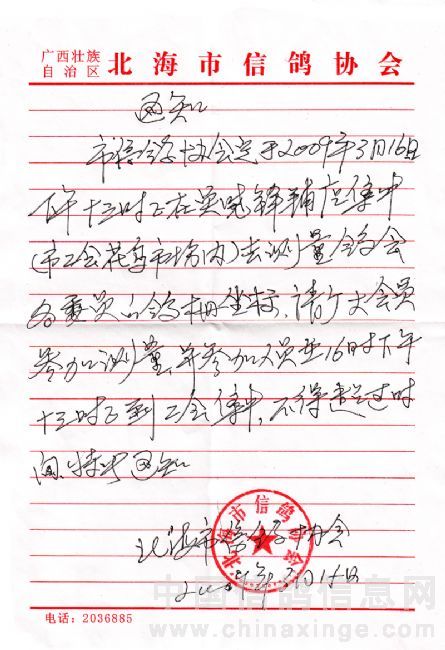 广西壮族
自治区
北海市信鸽协会
通知
市信鸽协会定于2009年3月16日
下午十三时正在吴晓锋铺店集中
(市工会花鸟市场内)去测量全会
各委员的鸽棚坐标,请广大会员
参加测量,并参加人员在16日下午
十三时正到工会集中,不得超过时
间,特此通知
北海市信鸽协会
2009年3月15日
北海市信鸽协会
电话:2036885
中国信鸽信息网
www.chinaxinge.com